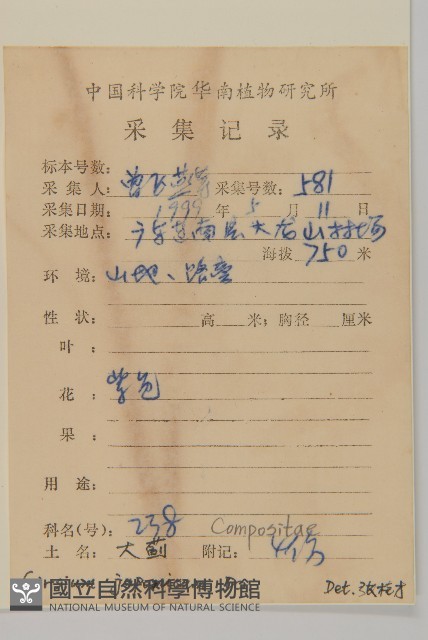 中国科学院华南植物研究所
采集记录
标本号数:
采集人: 曾飞燕等 采集号数: 581
采集日期: 1999 年 5 月 11 日
采集地点: 广东连南县大龙山林场
海拨 750 米
环境: 山地、路旁
性状: 高 米; 胸径 厘米
叶:
花: 紫色
果:
用途:
科名(号): 238 Compositae
土名: 大蓟 附记:
Cirsium japonicum DC.
Det.
國立自然科學博物館
NATIONAL MUSEUM OF NATURAL SCIENCE